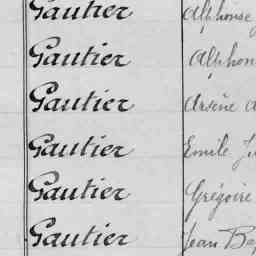 Gautier Alphonse
Gautier Alphon
Gautier Arsène A
Gautier Emile Ju
Gautier Grégoire
Gautier Jean Bap